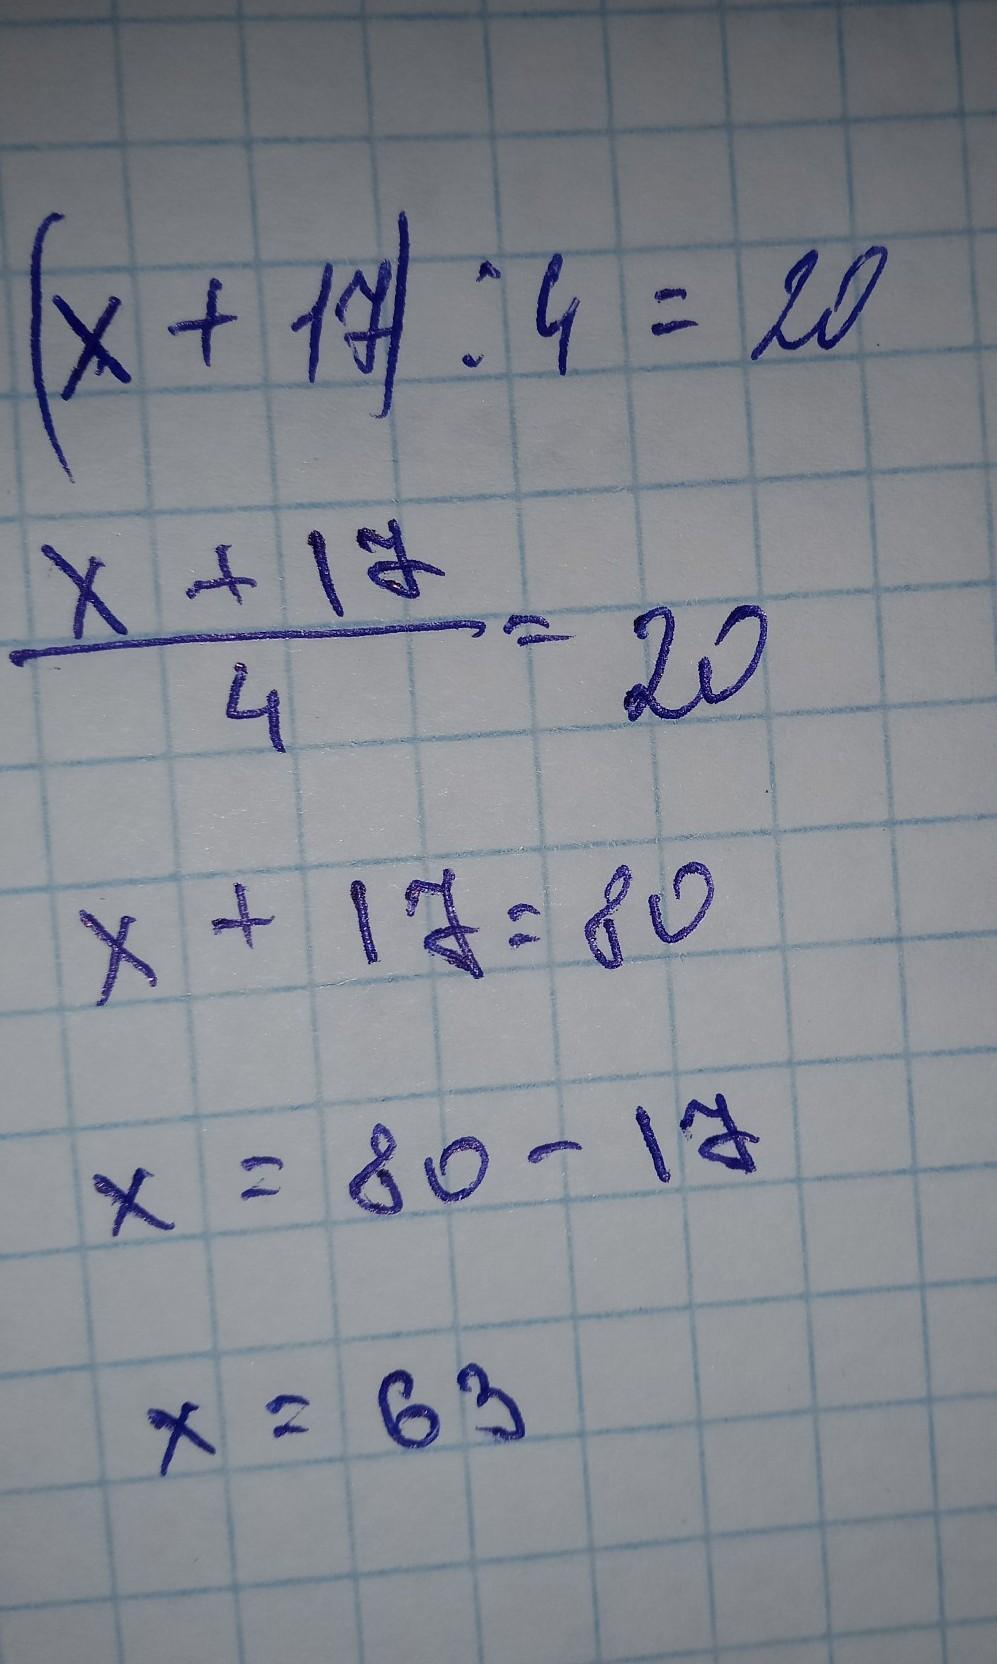 (x + 17) : 4 = 20
x + 17
4
= 20
x + 17 = 80
x = 80 - 17
x = 63